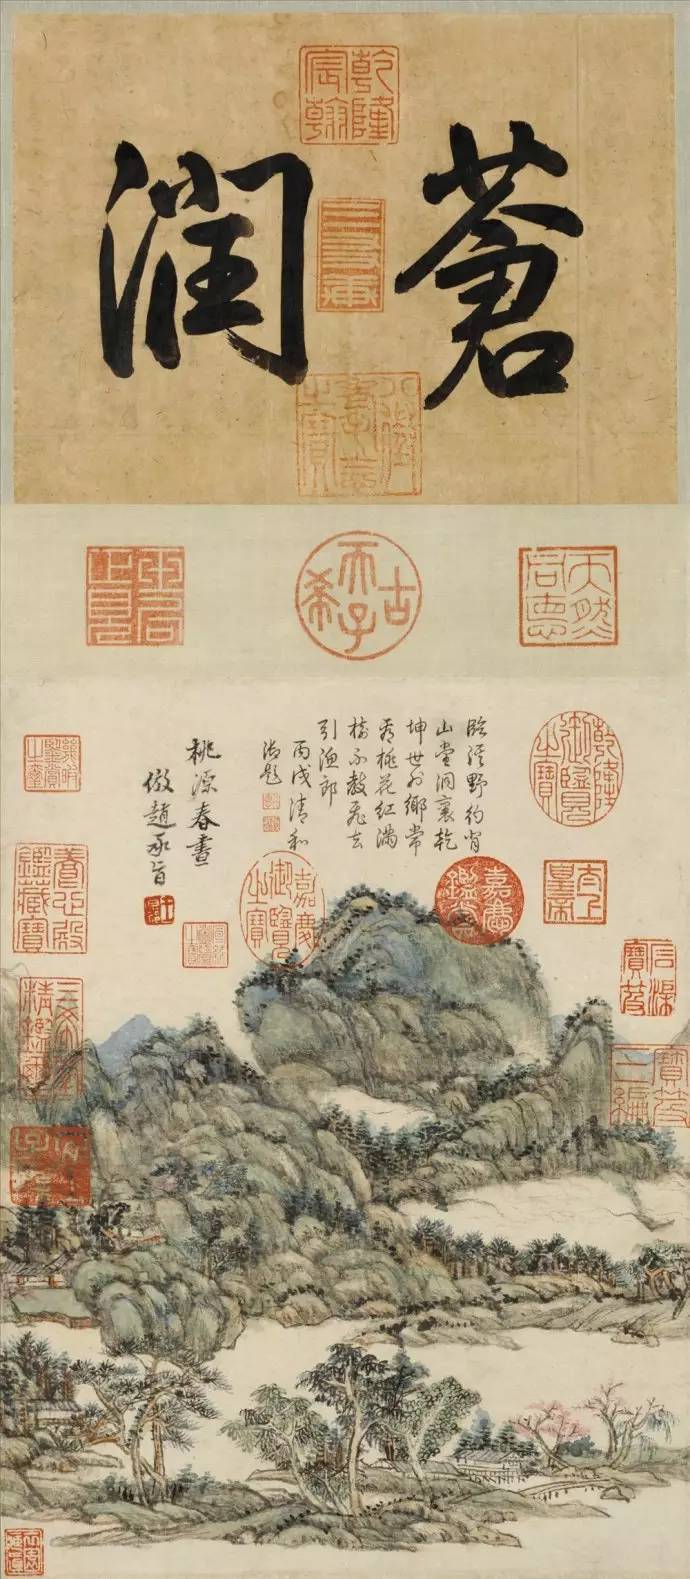 乾隆宸翰
蒼潤
八徵耄念之寶
古希天子
乾隆御覽之寶
太上皇帝
石渠寶笈
寶笈三編
嘉慶鑑賞
臨溪野彴背
山堂洞裏乾
坤世外鄉常
看桃花紅滿
樹不教飛去
引漁郎
丙戌清和
御題
嘉慶御覽之寶
桃源春晝
倣趙承旨
養心殿鑑藏寶
三希堂精鑑璽
宜子孫